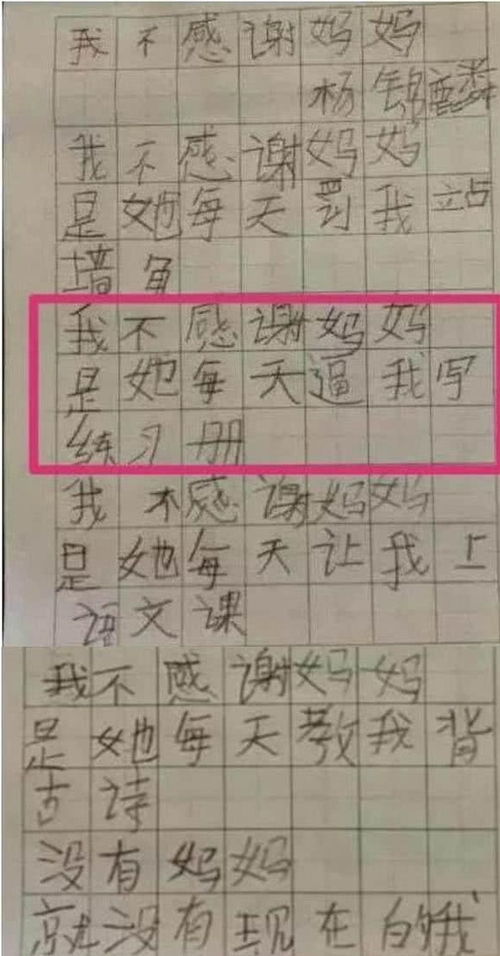 我不感谢妈妈
杨锦麟
我不感谢妈妈
是她每天罚我站
墙角
我不感谢妈妈
是她每天逼我写
练习册
我不感谢妈妈
是她每天让我上
语文课
我不感谢妈妈
是她每天教我背
古诗
没有妈妈
就没有现在的我